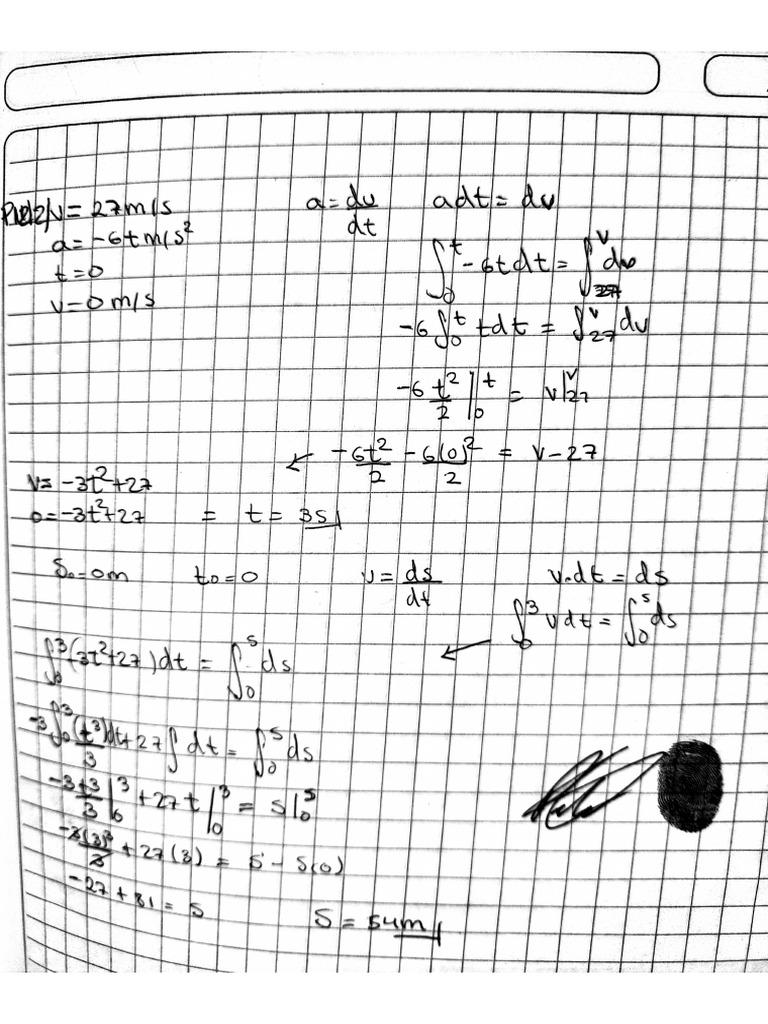 v = 27 m/s
a = -6t m/s²
t = 0
v = 0 m/s
a = dv/dt    a dt = dv
∫₀ᵗ -6t dt = ∫₂₇ᵛ dv
-6 ∫₀ᵗ t dt = ∫₂₇ᵛ dv
-6 t²/2 |₀ᵗ = v |₂₇ᵛ
↙ -6t²/2 - 6(0)²/2 = v - 27
v = -3t² + 27
0 = -3t² + 27    = t = 3s
S₀ = 0m    t₀ = 0    v = ds/dt    v.dt = ds
∫₀³ v dt = ∫₀ˢ ds
↙
∫₀³ (-3t² + 27) dt = ∫₀ˢ ds
-3 ∫₀³ (t³)/3 dt + 27 ∫ dt = ∫₀ˢ ds
-3t³/3 |₀³ + 27t |₀³ = s |₀ˢ
-3(3)³/3 + 27(3) = S - S(0)
-27 + 81 = S    S = 54m